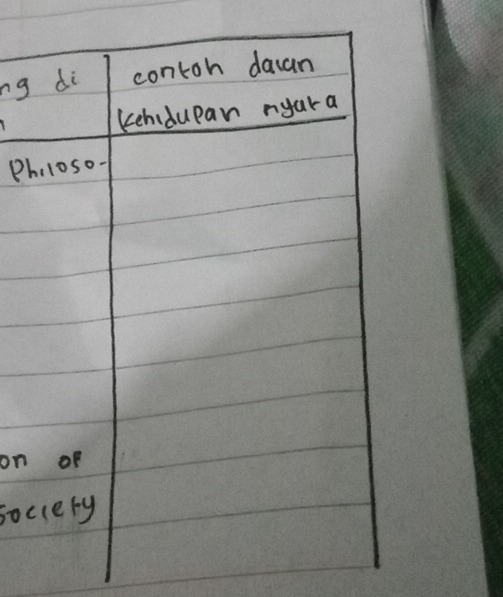 ng di
contoh dalan
kehidupan nyara
Philoso-
on of
society